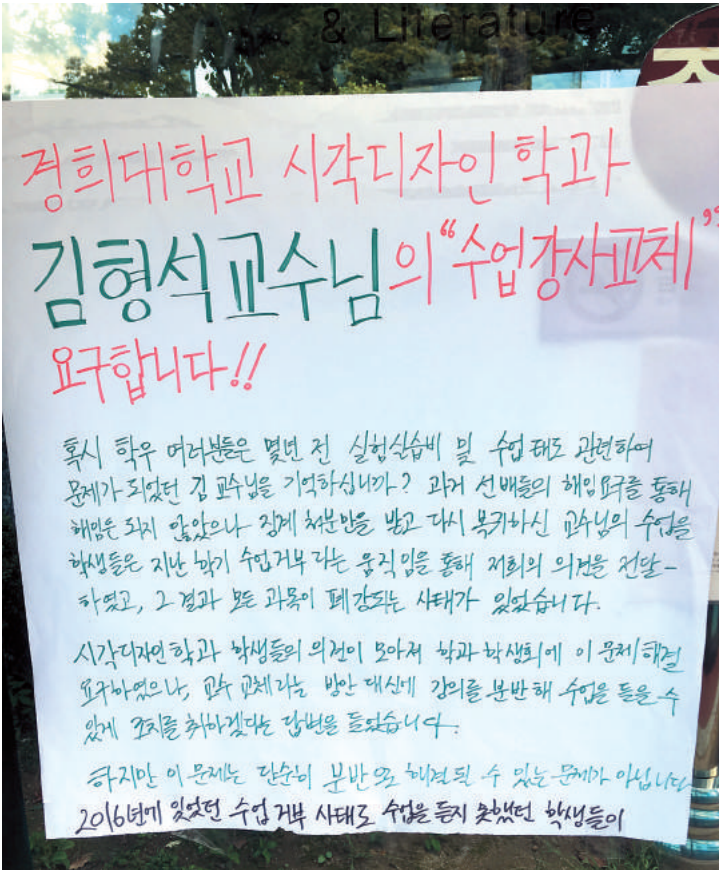 & Literature
경희대학교 시각디자인 학과
김형석교수님의 "수업강사교체"
요구합니다!!
혹시 학우 여러분들은 몇년 전 실험실습비 및 수업 태도 관련하여
문제가 되었던 김 교수님을 기억하십니까? 과거 선배들의 해임요구를 통해
해임은 되지 않았으나 징계 처분만을 받고 다시 복귀하신 교수님의 수업을
학생들은 지난 학기 수업거부 라는 움직임을 통해 저희의 의견을 전달-
하였고, 그 결과 모든 과목이 폐강되는 사태가 있었습니다.
시각디자인 학과 학생들의 의견이 모아져 학과 학생회에 이 문제 해결
요구하였으나, 교수 교체라는 방안 대신에 강의를 분반해 수업을 들을 수
있게 조치를 취하겠다는 답변을 들었습니다.
하지만 이 문제는 단순히 분반으로 해결될 수 있는 문제가 아닙니다
2016년에 있었던 수업 거부 사태로 수업을 듣지 못했던 학생들이